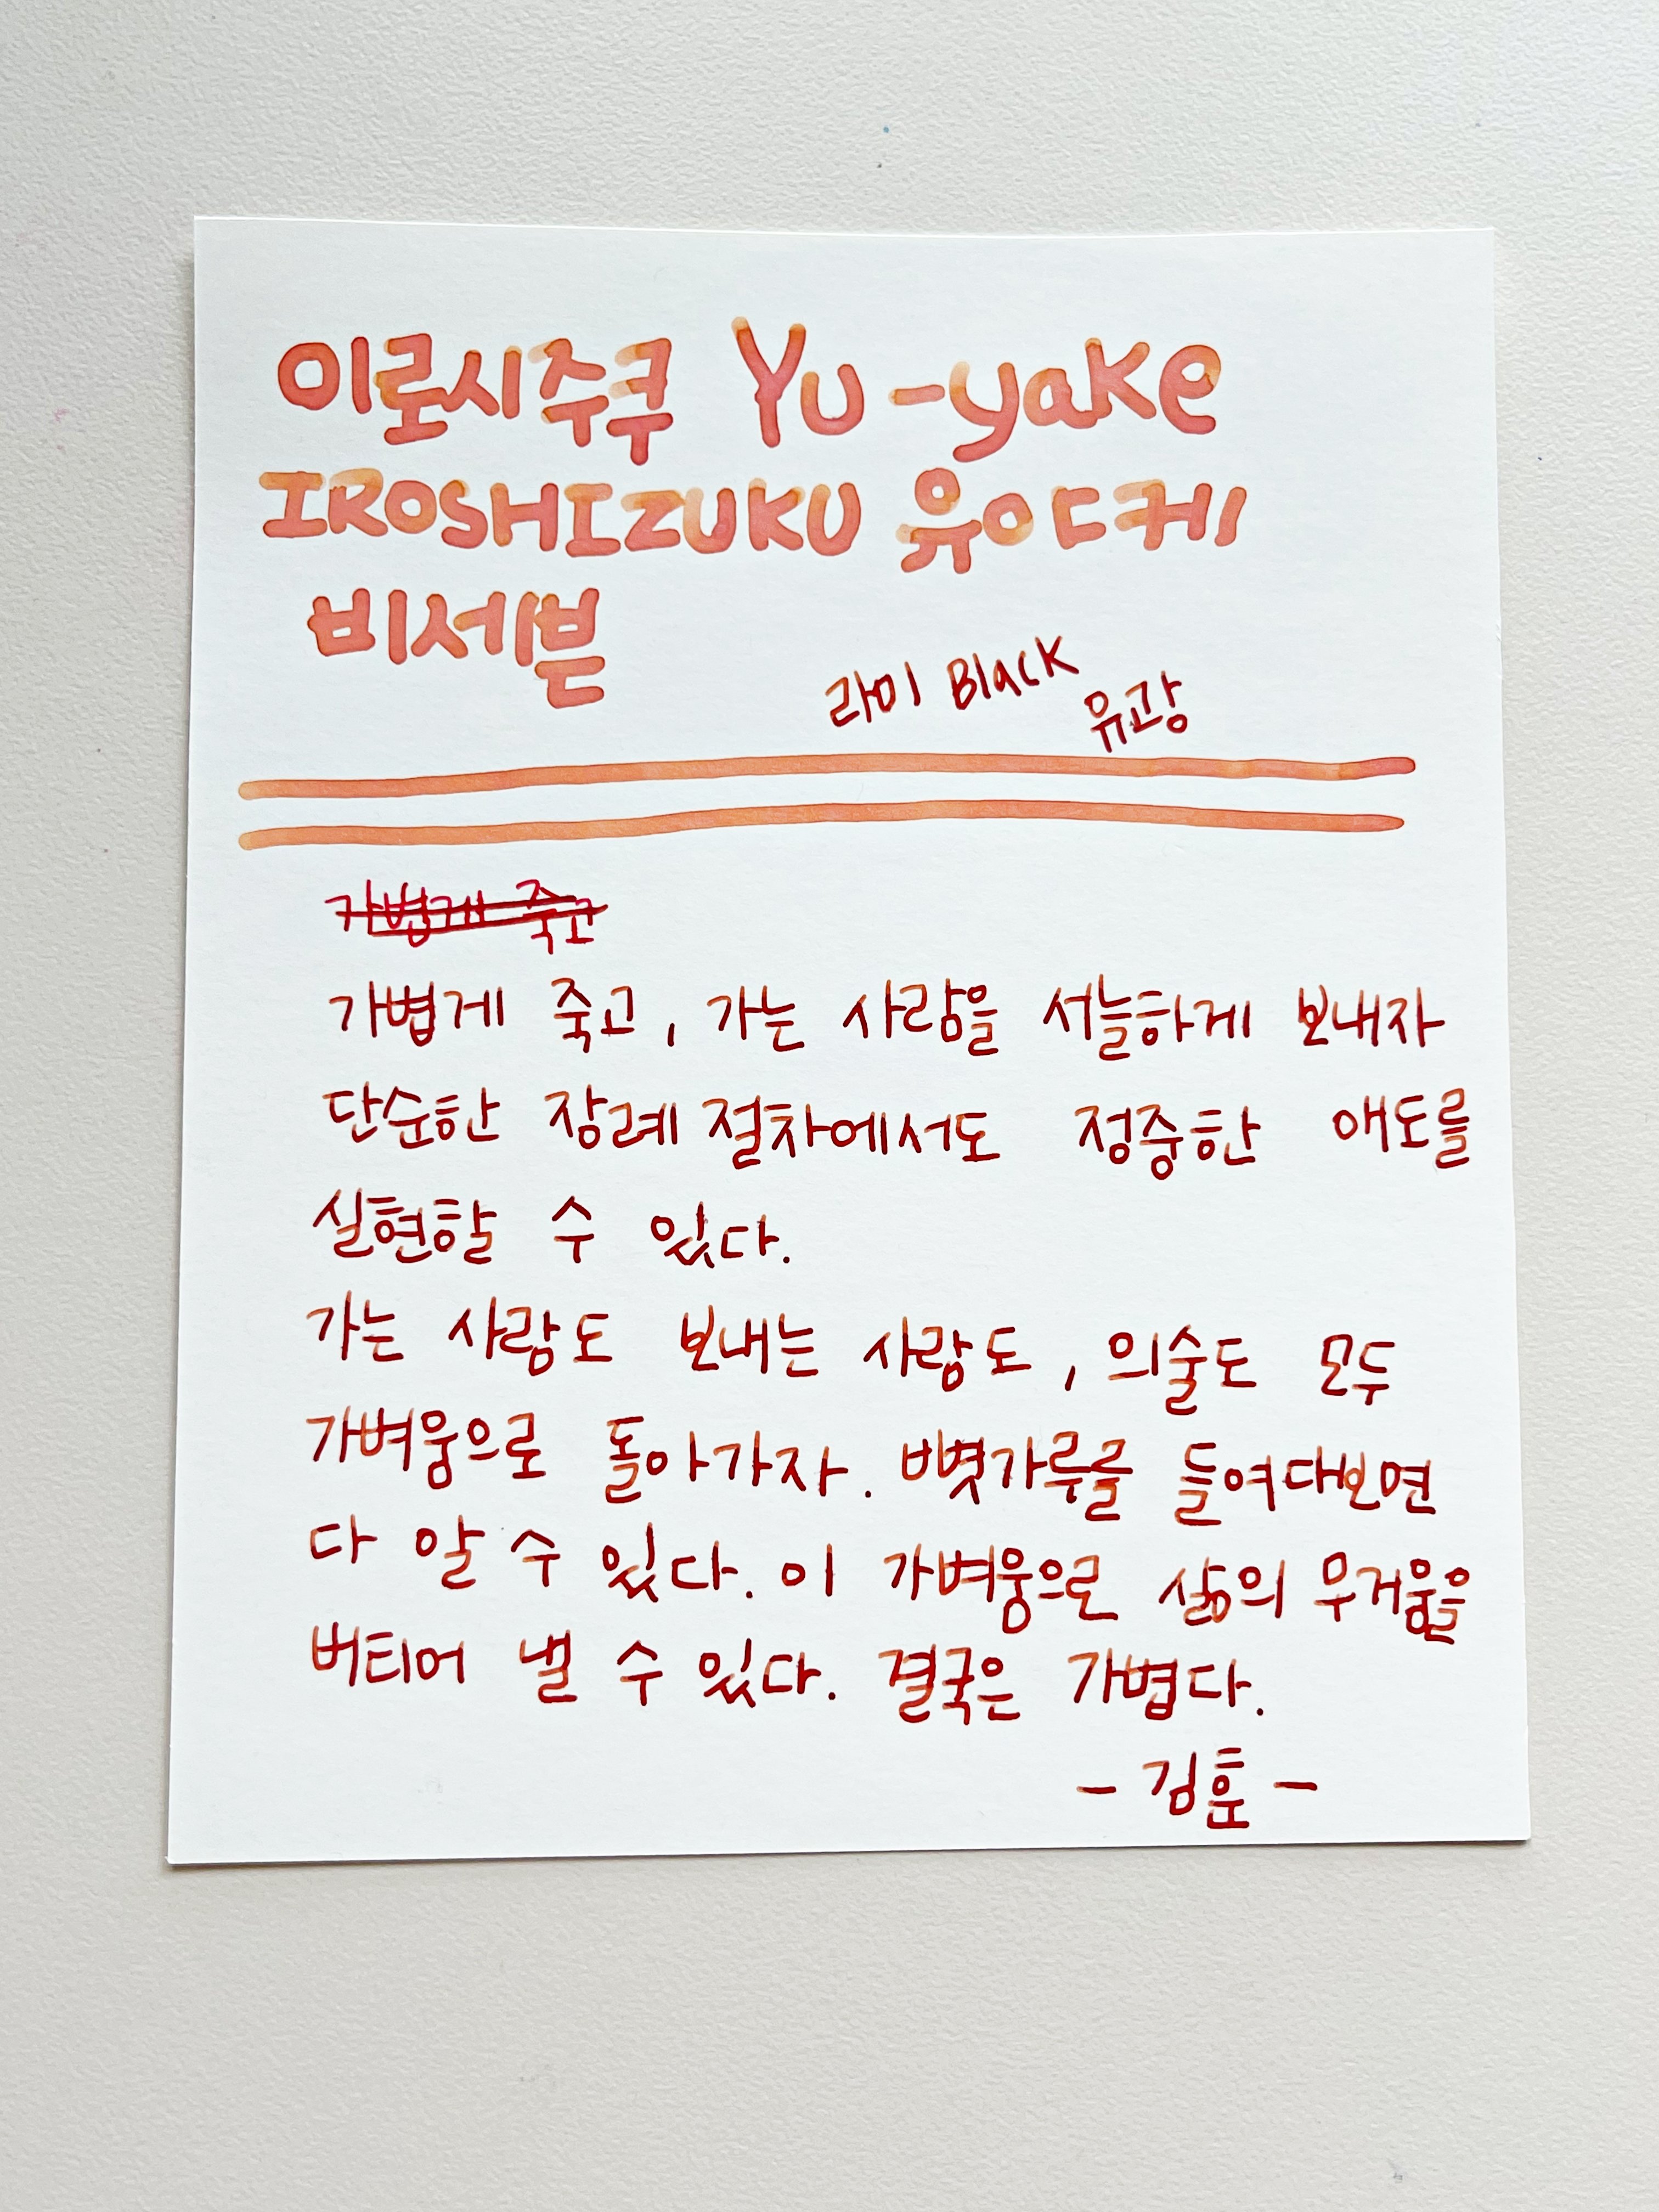 이로시주쿠 Yu-yake
IROSHIZUKU 유야케
비세븐
라미 Black
유광
가볍게 죽고
가볍게 죽고, 가는 사람을 서늘하게 보내자
단순한 장례 절차에서도 정중한 애도를
실현할 수 있다.
가는 사람도 보내는 사람도, 의술도 모두
가벼움으로 돌아가자. 뼛가루를 들여다보면
다 알 수 있다. 이 가벼움으로 삶의 무거움을
버티어 낼 수 있다. 결국은 가볍다.
- 김훈 -